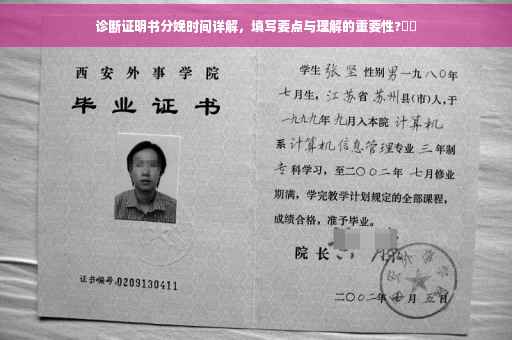 诊断证明书分娩时间详解，填写要点与理解的重要性?
西安外事学院
毕业证书
证书编号:0209130411
学生 张坚 性别 男 一九八〇年
七月生，江苏省 苏州县(市)人,于
一九九九年 九月入本院 计算机
系 计算机信息管理专业 三 年制
专科学习，至二〇〇二年 七月修业
期满，学完教学计划规定的全部课程，
成绩合格，准予毕业。
院长
二〇〇二年 月五日